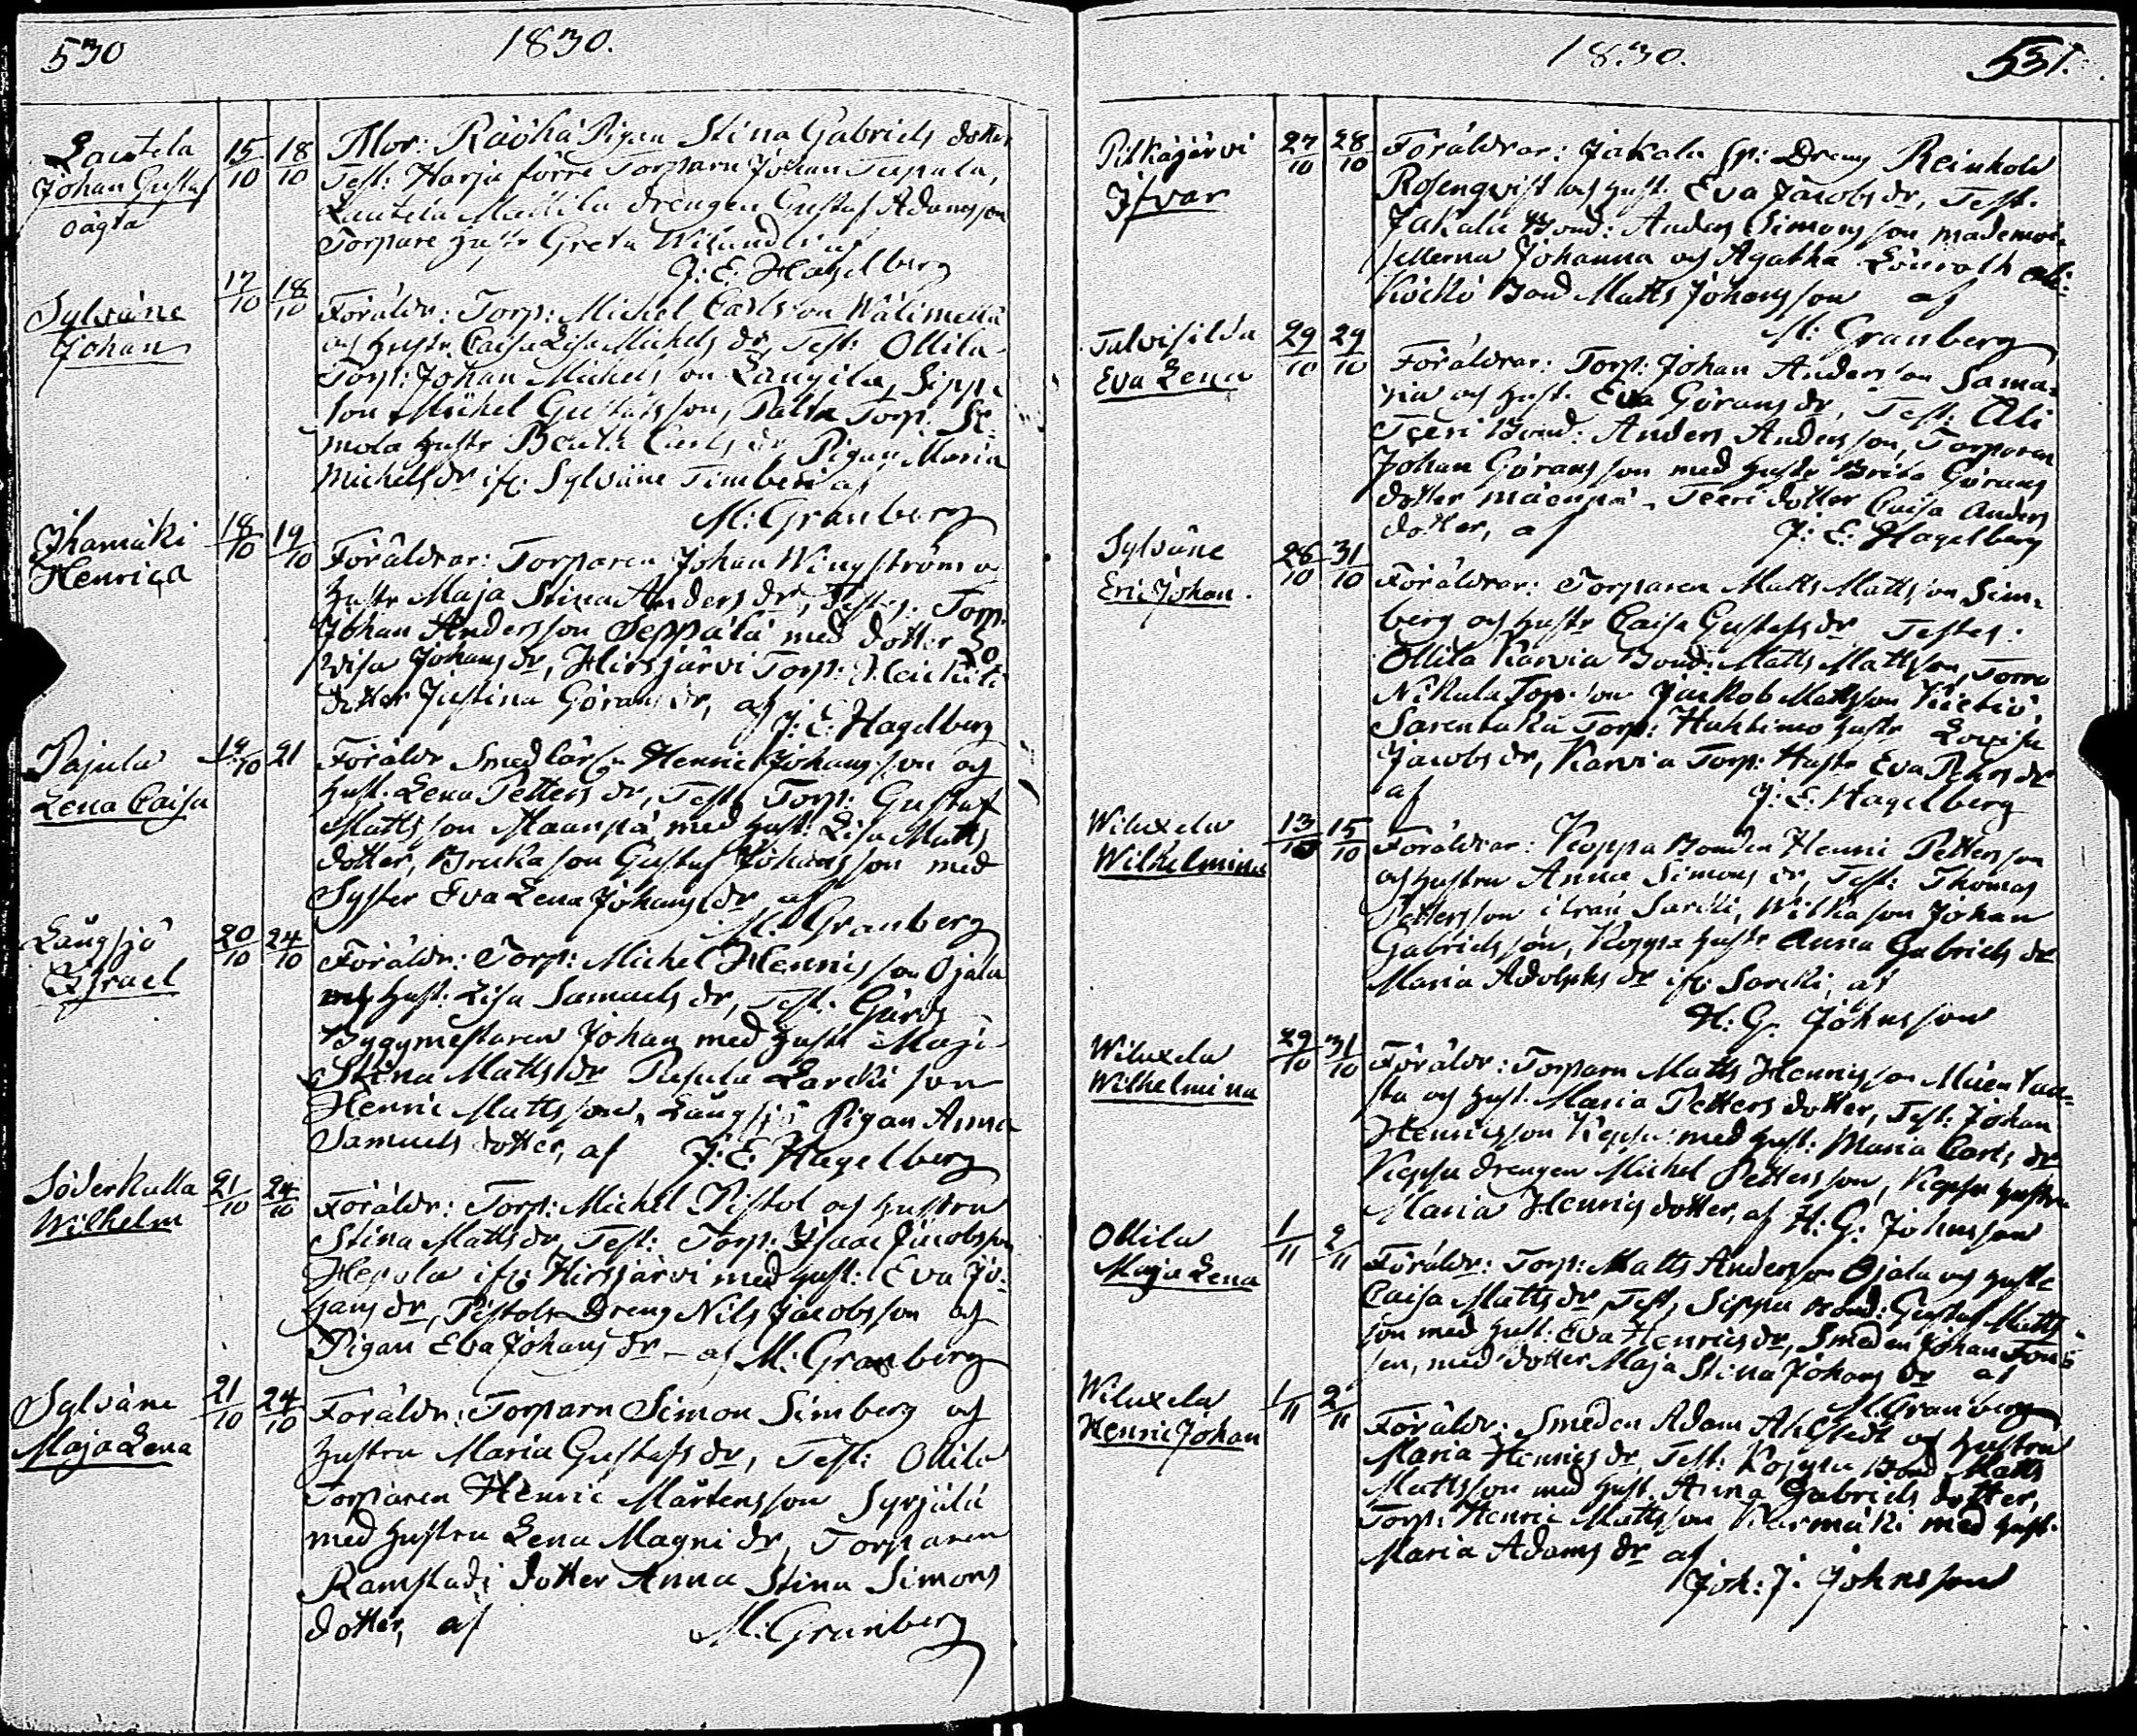 530 1830.
Lautela 15/10 18/10 Mor: Räöhä Pigan Stina Gabriels dotter
Johan Gustaf Test: Harju förre Torparn Johan Tupala,
oägta Lautela Mattila drengen Gustaf Adamsson
Torpare hustr Greta Wilandr af
J: E: Hagelberg
Sylväne 17/10 18/10 Föräldr: Torp: Michel Carlsson Wälimettä
Johan och hustr. Caisa Lisa Michels dr, Test: Ollila
Torp: Johan Michelsson Laugila, Sippa
son Michel Gustafsson, Torp:
mola hustr Beata Carls dr, Pigan Maria
Michels dr ifr. Sylväne Timberi af
M: Granberg
Jhamäki 18/10 19/10 Föräldrar: Torparen Johan Wingström o
Henrica hustr Maja Stina Anders dr, Testes: Torp:
Johan Andersson Seppälä med dotter Lo
visa Johans dr, Hirsjärvi Torp: Heikkilä
dotter Justina Görans dr, af J: E: Hagelberg
Pajula 19/10 21 Föräldr Smedlärl. Henric Johansson och
Lena Caisa hust. Lena Petters dr, Test, Torp: Gustaf
Mattsson Maanpä med hust: Lisa Matts
dotter, Bruka son Gustaf Johansson med
Syster Eva Lena Johans dr af
M: Granberg
Långsjö 20/10 24/10 Föräldr: Torp: Michel Henricsson Ojala
Israel och hust: Lisa Samuels dr, Test. Gärds
Byggmestaren Johan med hustr Maja
Stina Matts dr Pusula Lareki son
Henric Mattsson, Långsjö Pigan Anna
Samuels dotter, af J: E: Hagelberg
Söderkulla 21/10 24/10 Föräldr: Torp: Michel Pistol och hustrun
Wilhelm Stina Matts dr, Test: Torp: Isaac Jacobsson
Hepola ifr: Hirsjärvi med hust: Eva Jo-
hans dr, Pistola Dreng Nils Jacobsson och
Pigan Eva Johans dr - af M: Granberg
Sylväne 21/10 24/10 Föräldr: Torparn Simon Simberg och
Maja Lena hustru Maria Gustafs dr, Test: Ollila
Torparen Henric Mårtensson Syrjälä
med hustru Lena Magni dr, Torparen
Ramstadi dotter Anna Stina Simons
dotter, af M: Granberg
1830. 531.
Pitkäjärvi 27/10 28/10 Föräldrar: Jakala Sp: Dreng Reinhold
Ifvar Rosenqvist och hust. Eva Jacobs dr, Test.
Jakala Bond: Anders Simonsson mademoi-
sellerna Johanna och Agatha Lönroth ali-
Köckö Bond Matts Johansson af
M: Granberg
Talvisilda 29/10 29/10 Föräldrar: Torp: Johan Andersson Sama-
Eva Lena ria och hust. Eva Görans dr, Test: Ali
Teeri Bond: Anders Andersson, Torparen
Johan Göransson med hustr Brita Görans
dotter mäenpä, Teeri dotter Caisa Anders
dotter, af J: E: Hagelberg
Sylväne 28/10 31/10 Föräldrar: Torparen Matts Mattsson Sim-
Eric Johan. berg och hustr Caisa Gustafs dr Testes:
Ollila Karvia Bond: Matts Mattsson, Torro
Nikula Torp. son Jackob Mattsson
Sarentaka Torp: Huhtimo hustr Lovisa
Jacobs dr, Karvia Torp: Hustr Eva Pehrs dr
af J: E: Hagelberg
Wiluxela 13/10 15/10 Föräldrar: Koppa Bonden Henric Pettersson
Wilhelmina och hustru Anna Simons dr, Test: Thomas
Pettersson ifrån Sareki, Wilka son Johan
Gabrielsson, Koppa hustr Anna Gabriels dr
Maria Adolphs dr ifr. Sareki, af
H: G: Johnsson
Wiluxela 29/10 31/10 Föräldr: Torparn Matts Henricsson Mäentaa-
Wilhelmina sta och hust. Maria Petters dotter, Test: Johan
Henricsson med hust: Maria Carls dr
drengen Michel Pettersson, hustru
Maria Henrics dotter, af H: G: Johnsson
Ollila 1/11 2/11 Föräldr: Torp: Matts Andersson Ojala och hustr
Maja Lena Caisa Matts dr Test, Sippu Bond: Gustaf Matts
son med hust: Eva Henrics dr, Smeden Johan
sen, med dotter Maja Stina Johans dr af
M: Granberg
Wiluxela 1/11 2/11 Föräldr: Smeden Adam Ahlstedt och hustru
Henric Johan Maria Henrics dr, Test: Koppa Bond Matts
Mattsson med hust. Anna Gabriels dotter,
Torp: Henric Mattsson Karmäki med hust.
Maria Adams dr af
Joh: J. Johnsson